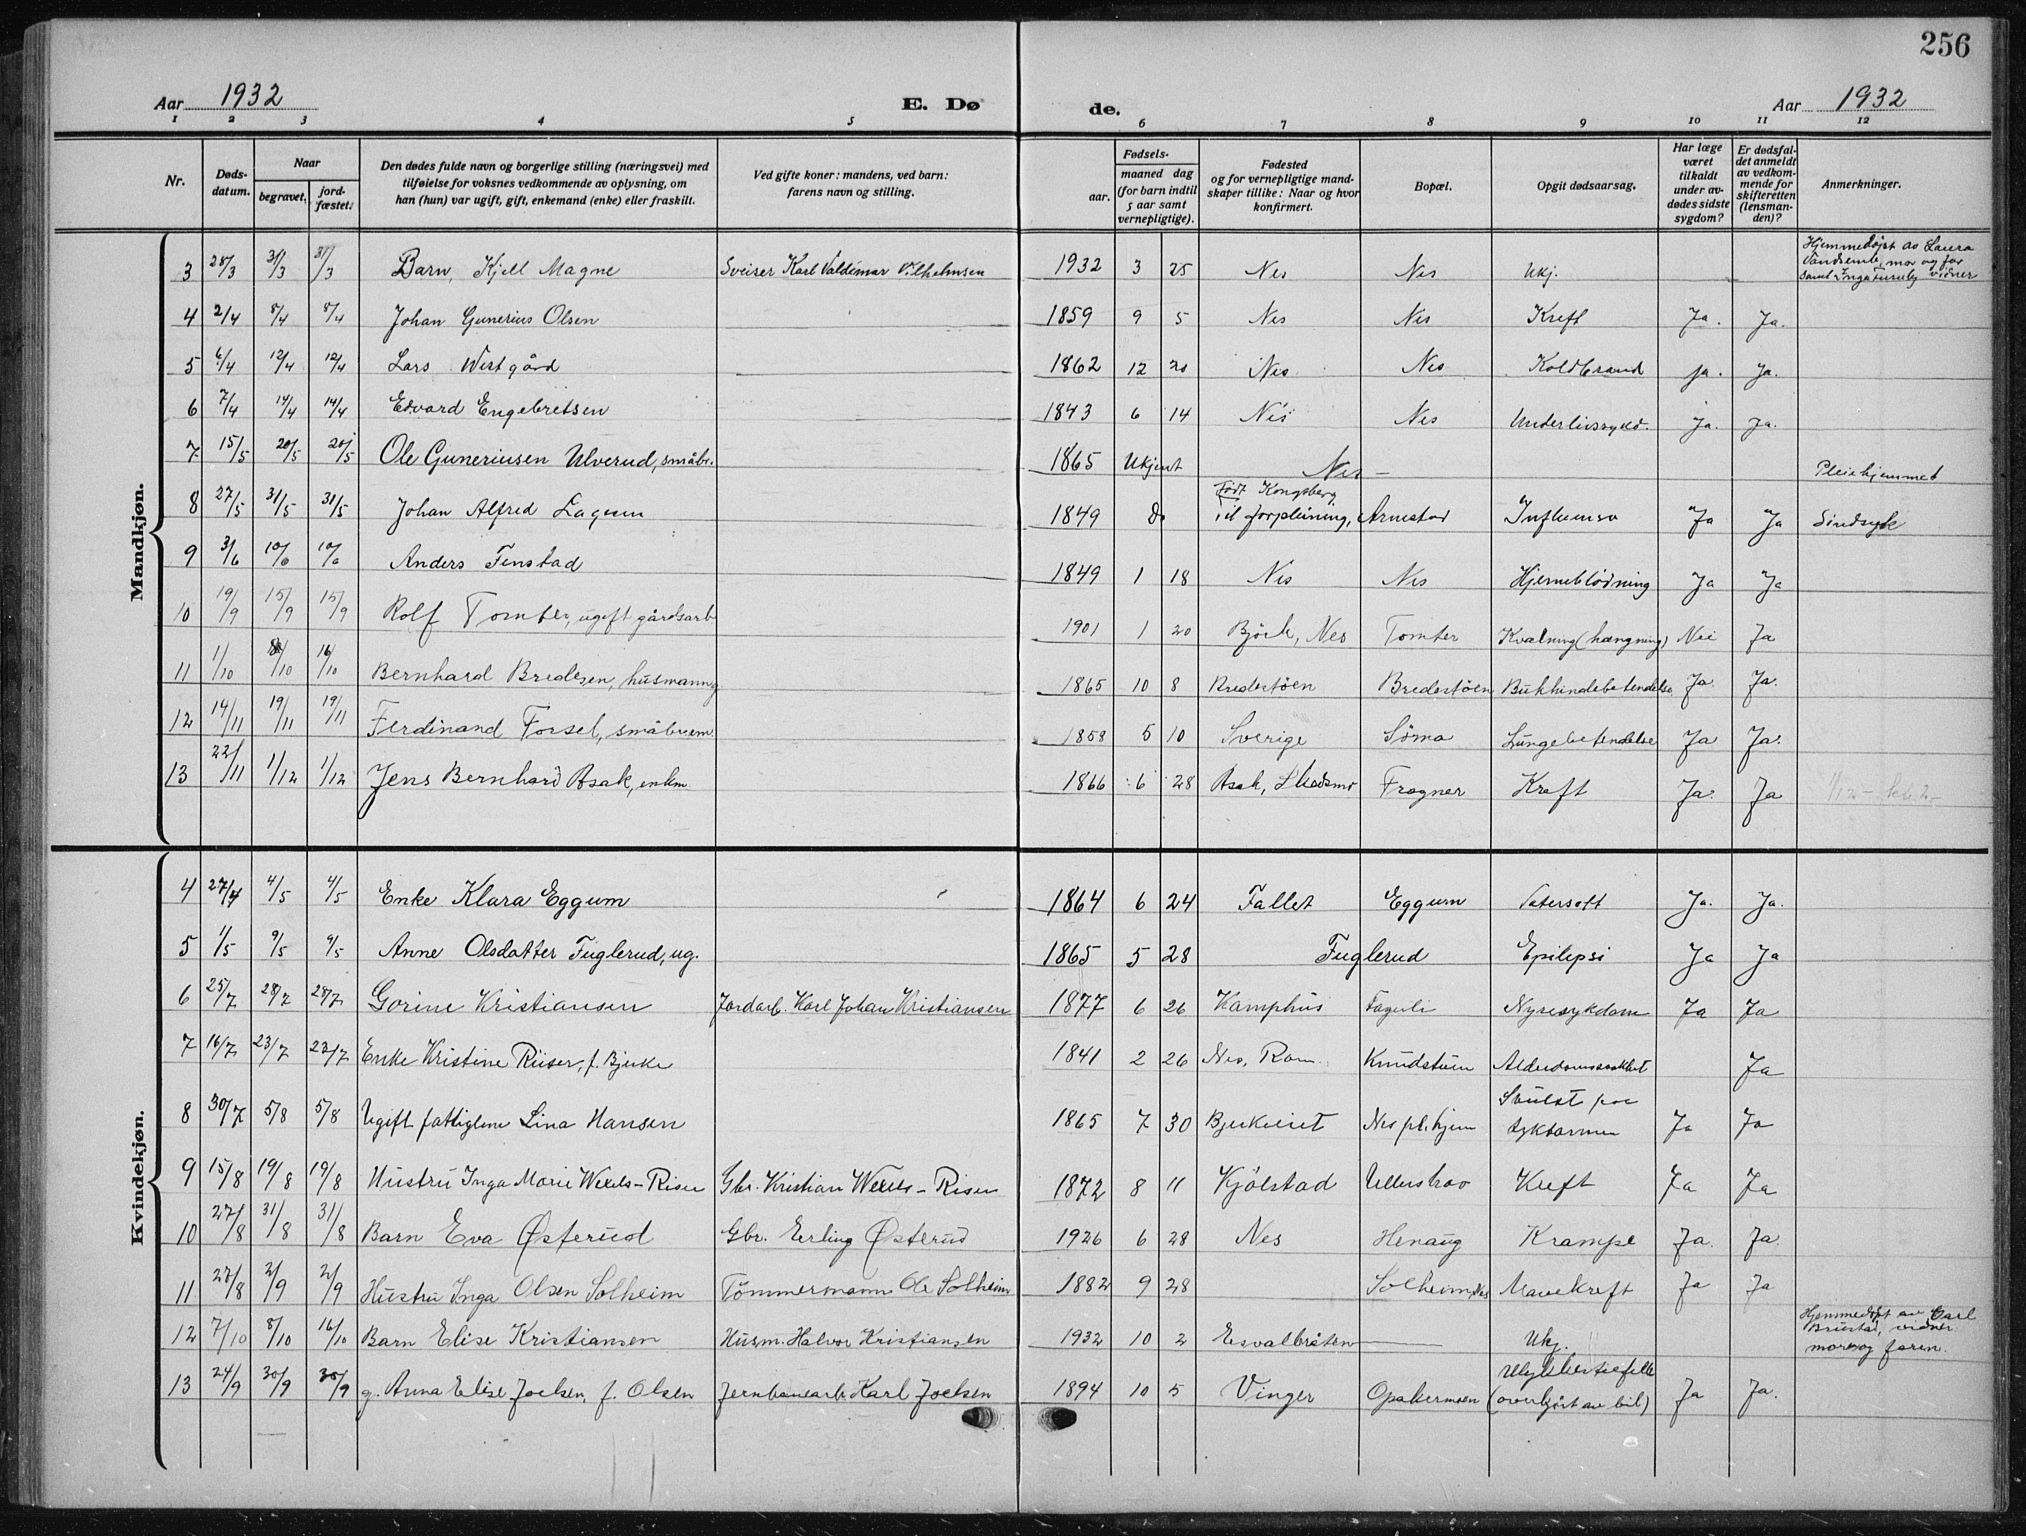 256
Aar 1932 E. Dø de. Aar 1932
1 2 3 4 5 6 7 8 9 10 11 12
Nr.
Døds-
datum.
Naar
begravet. jord-
fæstet.
Den dødes fulde navn og borgerlige stilling (næringsvei) med
tilføielse for voksnes vedkommende av oplysning, om
han (hun) var ugift, gift, enkemand (enke) eller fraskilt.
Ved gifte koner: mandens, ved barn:
farens navn og stilling.
Fødsels-
aar. maaned dag
(for barn indtil
5 aar samt
vernepligtige).
Fødested
og for vernepligtige mand-
skaper tillike: Naar og hvor
konfirmert.
Bopæl.
Opgit dødsaarsag.
Har læge
været
tilkaldt
under av-
dødes sidste
sygdom?
Er dødsfal-
det anmeldt
av vedkom-
mende for
skifteretten
(lensman-
den)?
Anmerkninger.
Mandkjøn.
3 28/3 31/3 31/3 Barn, Kjell Magne Sveiser Karl Valdemar Vilhelmsen 1932 3 25 Nes Nes Ukj. Hjemmedøpt av Laura
Vandsemb, mor og far
samt Inga Furuly vidner
4 2/4 8/4 8/4 Johan Gunerius Olsen 1859 9 5 Nes Nes Kreft Ja. Ja.
5 6/4 12/4 12/4 Lars Westgård 1862 12 20 Nes Nes Koldbrand ja. Ja.
6 7/4 14/4 14/4 Edvard Engebretsen 1843 6 14 Nes Nes Underlivssykd. Ja. Ja.
7 15/5 20/5 20/5 Ole Guneriusen Ulverud, småbr. 1865 Ukjent Nes –
8 27/5 31/5 31/5 Johan Alfred Lagum 1849 do Født Kongsberg
Til forpleining, Arnestad Influensa Ja Ja Pleiehjemmet
Sindsyk
9 3/6 10/6 10/6 Anders Finstad 1849 1 18 Nes Nes Hjerneblødning Ja Ja
10 19/9 15/9 15/9 Rolf Tomter, ugift gårdsarb 1901 1 20 Bjørk, Nes Tomter Kvælning (hængning) Nei Ja
11 1/10 8/10 16/10 Bernhard Bredesen, husmann g 1865 10 8 Bredestøen Bredestøen Bukhindebetendelse Ja Ja.
12 14/11 19/11 19/11 Ferdinand Forsel, småbr. em. 1858 5 10 Sverige Søma Lungebetendelse Ja Ja.
13 22/11 1/12 1/12 Jens Bernhard Asak, enkm. 1866 6 28 Asak, Skedsmo Frogner Kreft Ja. Ja 1/12 – kl. 2 –
Kvindekjøn.
4 27/4 4/5 4/5 Enke Klara Eggum 1864 6 24 Fallet Eggum Ja. Ja.
5 1/5 9/5 9/5 Anne Olsdatter Fuglerud, ug. 1865 5 28 Fuglerud Epilepsi Ja Ja
6 25/7 28/7 28/7 Gorine Kristiansen Jordarb. Karl Johan Kristiansen 1877 6 26 Kamphus Fagerli Nyresykdom Ja Ja
7 16/7 23/7 23/7 Enke Kristine Riiser, f. Bjerke 1841 2 26 Nes, Rom. Knudstuen Alderdomssvakhet Ja
8 30/7 5/8 5/8 Ugift fattiglem Lina Hansen 1865 7 30 Bjerkeiet Nes pl.hjem Svulst paa
tyktarmen Ja Ja
9 15/8 19/8 19/8 Hustru Inga Marie Wexels – Risen Gbr. Kristian Wexels – Risen 1872 8 11 Kjølstad Ullershov Kreft Ja Ja
10 27/8 31/8 31/8 Barn Eva Østerud Gbr. Erling Østerud 1926 6 28 Nes Henaug Krampe Ja. Ja.
11 27/8 2/9 2/9 Hustru Inga Olsen Solheim Tömmermann Ole Solheim 1882 9 28 Solheim, Nes Mavekreft Ja Ja
12 7/10 8/10 16/10 Barn Elise Kristiansen Husm. Halvor Kristiansen 1932 10 2 Esvalbråten Ukj. Hjemmedøpt av Carl
Brustad, vidner
mor og faren.
13 24/9 30/9 30/9 g. Anna Elise Joelsen, f. Olsen Jernbanearb. Karl Joelsen 1894 10 5 Vinger Opakermoen Ulykkestilfelle
(overkjørt av bil) Ja Ja.